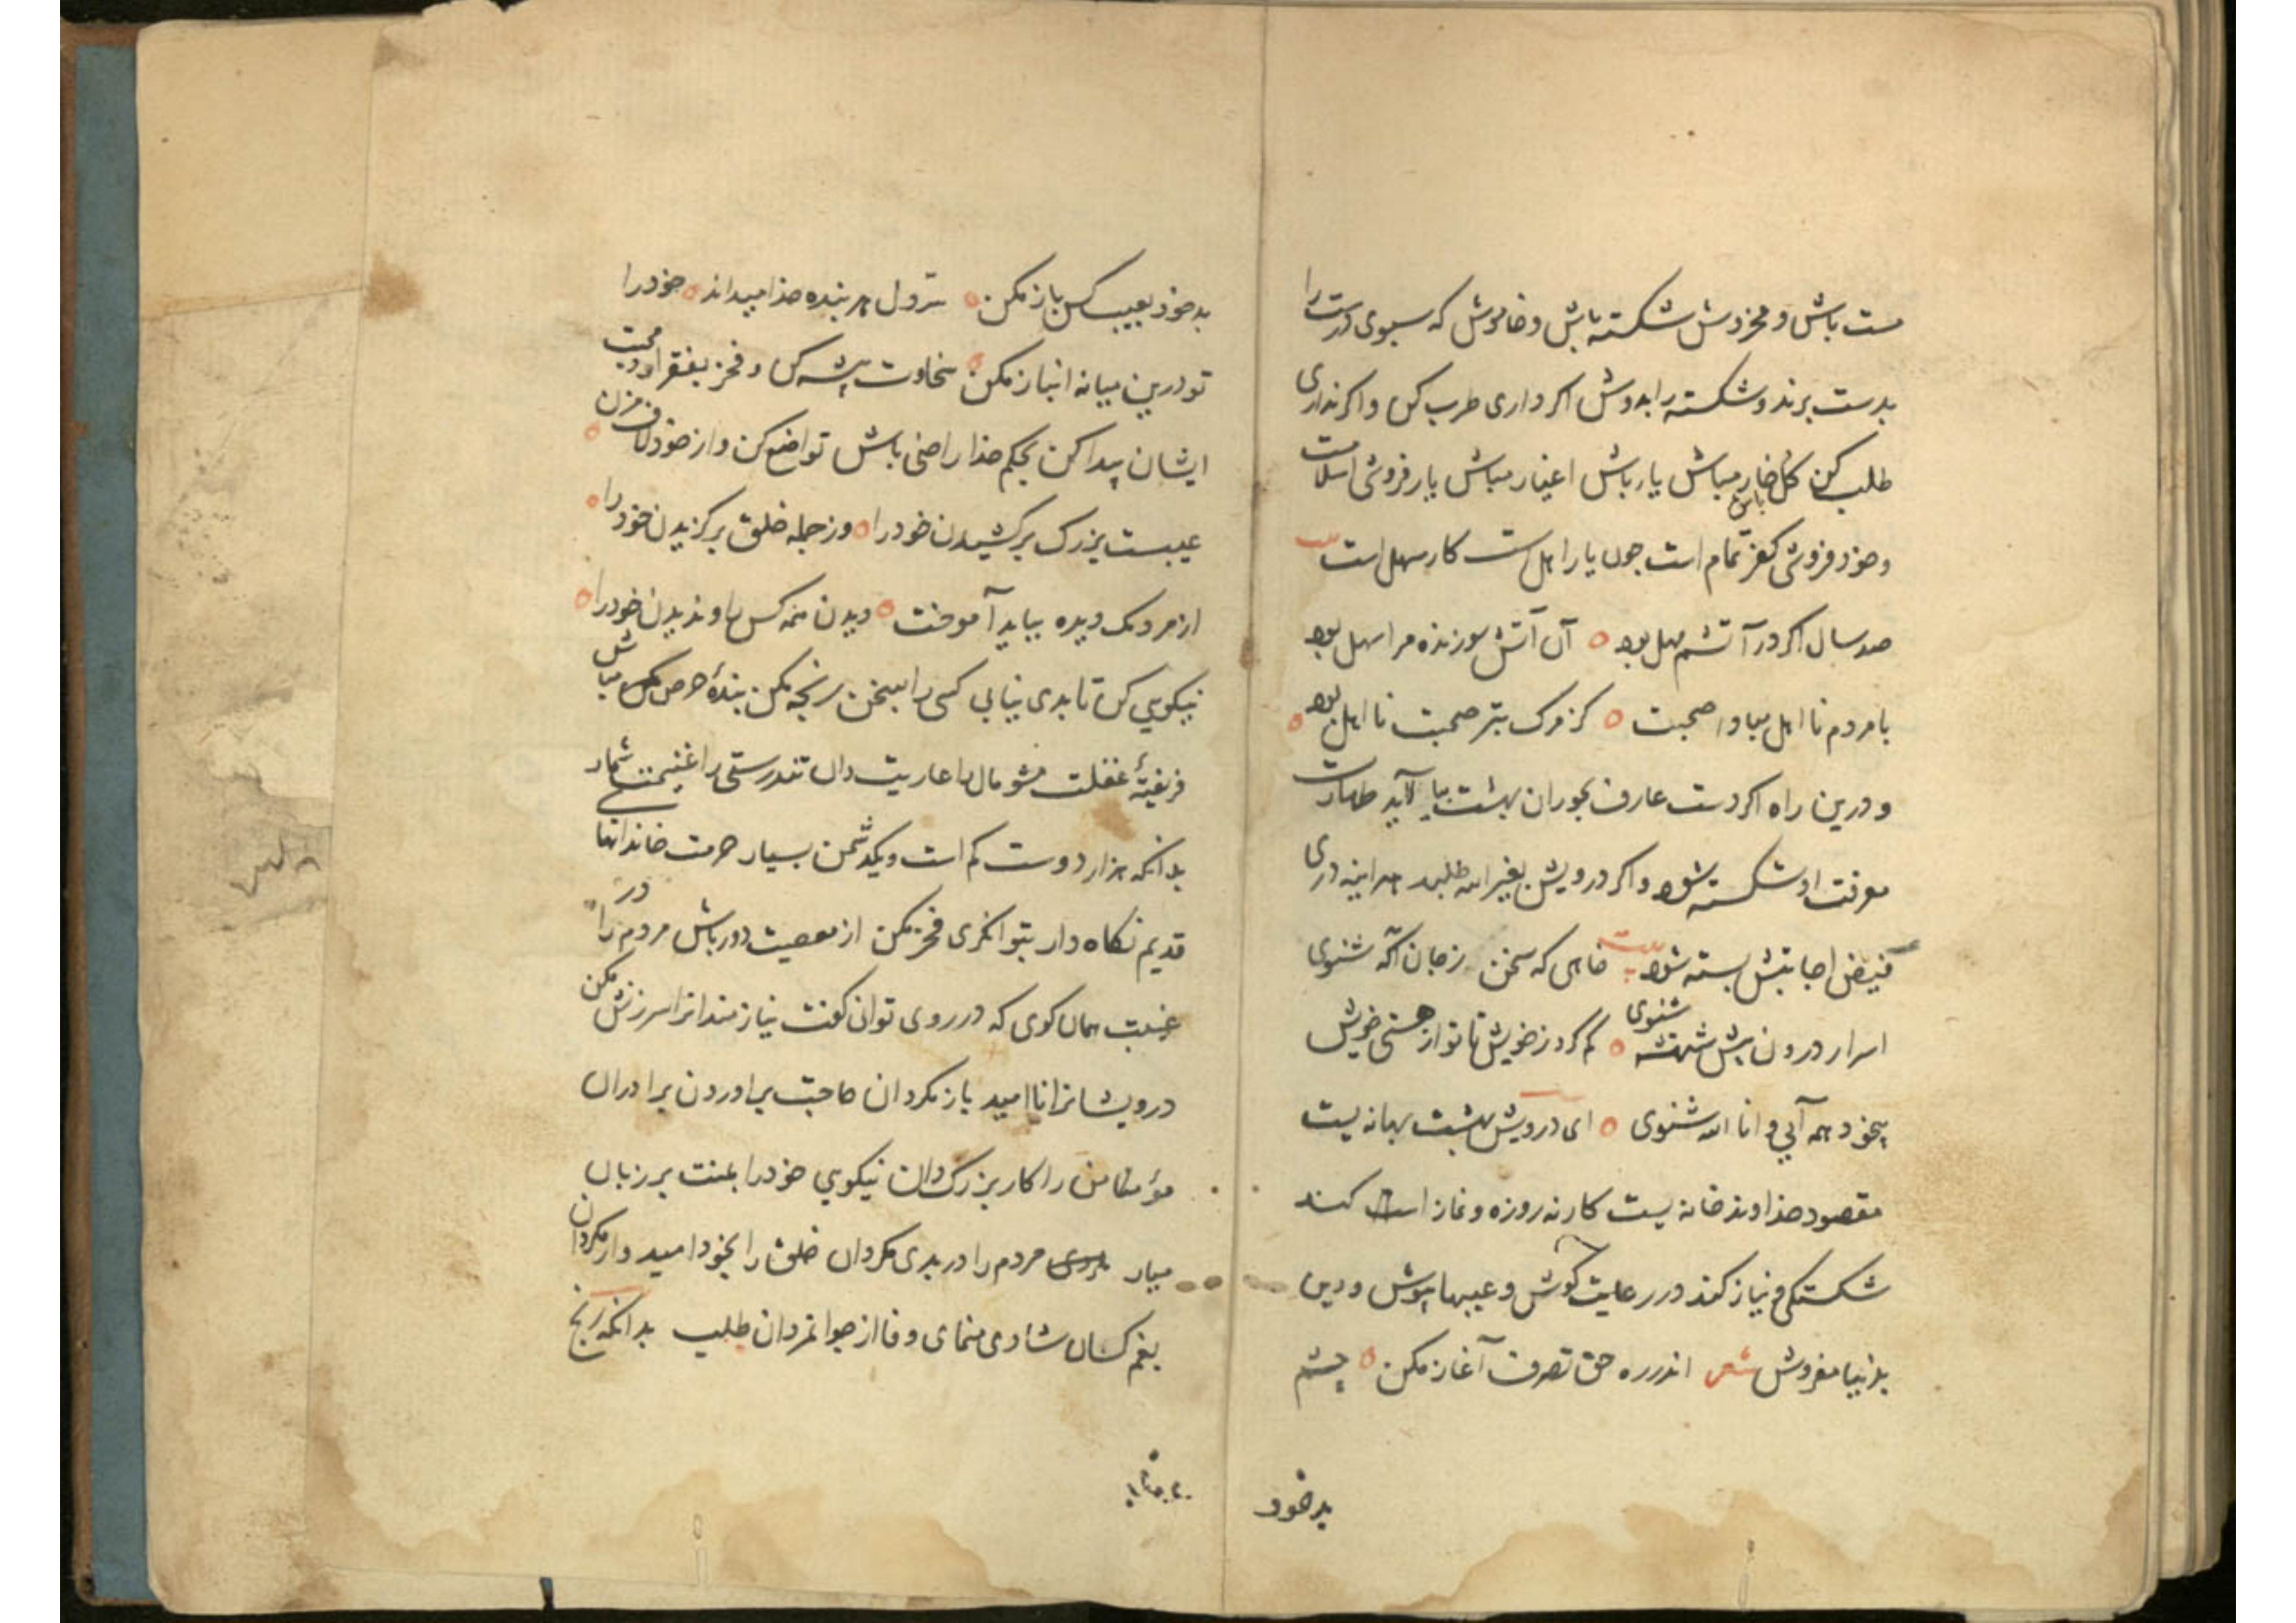 مست باش و مخروش شکسته باش و خاموش که سبوی درست را
بدست برند و شکسته را بدوش اکر داری طرب کن و اکر نداری
طلب کن کل باش خار مباش یار باش اغیار مباش یار فروشی اسلامست
و خود فروشی کفر تمام است چون یار اهل است کار سهل است بیت
صد سال اکر در آتشم مهل بود ه آن آتش سوزنده مرا سهل بود
با مردم نا اهل مبادا صحبت ه کز مرک بتر صحبت نا اهل بود ه
و درین راه اکر دست عارف بحوران بهشت بیالاید طهارت
معرفت او شکسته شود و اکر درویش بغیر الله طلبد هراینه دری
فیض اجابتش بسته شود بیت خاهی که سخن ز جان آکه شنوی
اسرار درون شنوی ه کم کرد ز خویش تا تو از هستی خویش
بیخود همه آیی و انا الله شنوی ه ای درویش بهشت بهانه یست
مقصود خداوند خانه یست کار نه روزه و نماز است کند
شکستکی و نیاز کند در رعایت کوش و عیبها بپوش و دین
بدنیا مفروش شعر اندر ره حق تصرف آغاز مکن ه چشم
بد خود
بد خود بعیب کس باز مکن ه سر دل هر بنده خدا میداند ه خود را
تو درین میانه انباز مکن ه سخاوت پیشه کن و فخر بفقر اور محبت
ایشان پیدا کن بحکم خدا راضی باش تواضع کن و از خود لاف مزن ه
عیبست بزرک برکشیدن خود را ه وز جمله خلق برکزیدن خود را ه
از مردمک دیده بباید آموخت ه دیدن همه کس را و ندیدن خود را ه
نیکویي کن تا بدی نیابی کسی را بسخن رنجه مکن بندهٔ حرص مباش
فریفتهٔ غفلت مشو مال را عاریت دان تندرستی را غنیمت شمار
بدانکه هزار دوست کم است و یکدشمن بسیار حرمت خاندانها
قدیم نکاه دار بتوانکری فخر مکن از معصیت دور باش مردم را در
غیبت همان کوی که در روی توان کفت نیازمندانرا سرزنش مکن
درویشانرا نا امید باز مکردان حاجت براوردن برادران
مؤمنان را کار بزرک دان نیکویي خود را بمنت بر زبان
میار مردم را در بدی مکردان خلق را بخود امیدوار مکردان
بغم کسان شادی منمای وفا از جوانمردان طلب بدانکه رنج